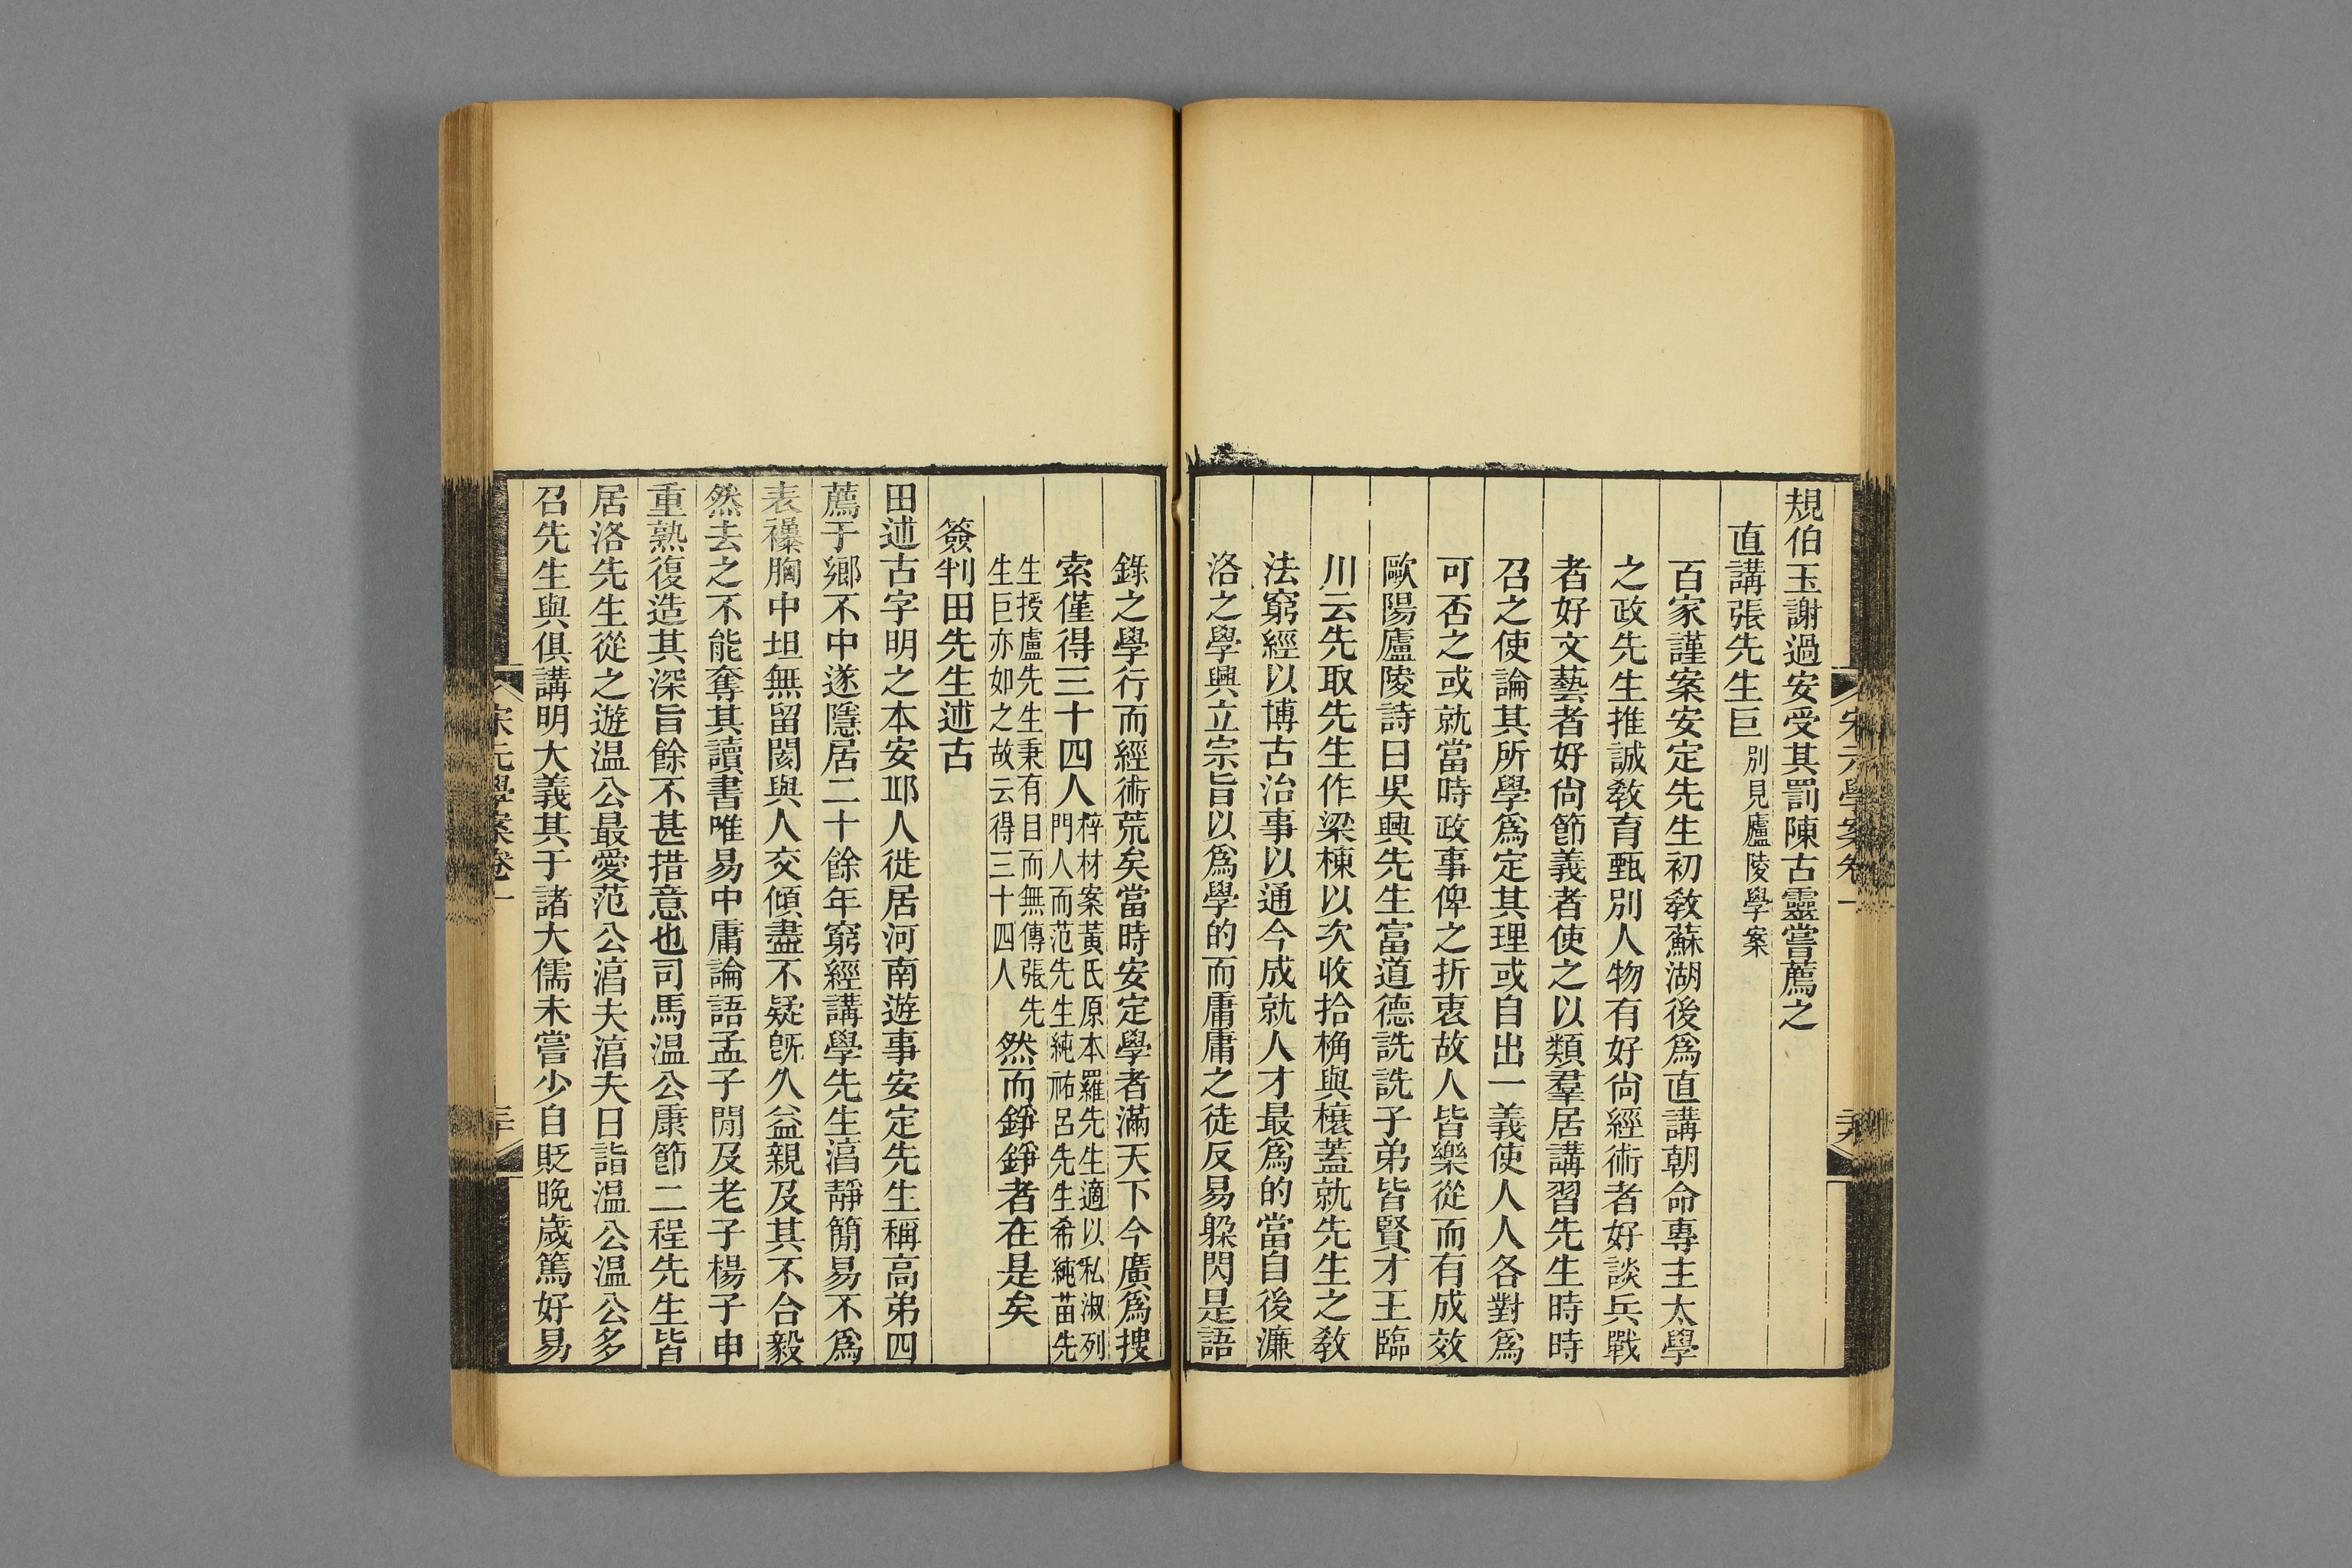 規伯玉謝過安受其罰陳古靈嘗薦之
直講張先生巨別見廬陵學案
百家謹案安定先生初敎蘇湖後爲直講朝命專主太學
之政先生推誠敎育甄別人物有好尙經術者好談兵戰
者好文藝者好尙節義者使之以類羣居講習先生時時
召之使論其所學爲定其理或自出一義使人人各對爲
可否之或就當時政事俾之折衷故人皆樂從而有成效
歐陽廬陵詩曰吳興先生富道德詵詵子弟皆賢才王臨
川云先取先生作梁棟以次收拾桷與榱蓋就先生之敎
法窮經以博古治事以通今成就人才最爲的當自後濂
洛之學興立宗旨以爲學的而庸庸之徒反易躱閃是語
錄之學行而經術荒矣當時安定學者滿天下今廣爲搜
索僅得三十四人梓材案黃氏原本羅先生適以私淑列
門人而范先生純祐呂先生希純苗先
生授盧先生秉有目而無傳張先
生巨亦如之故云得三十四人然而錚錚者在是矣
簽判田先生述古
田述古字明之本安邱人徙居河南遊事安定先生稱高弟四
薦于鄉不中遂隱居二十餘年窮經講學先生㵎靜簡易不爲
表襮胸中坦無留閡與人交傾盡不疑旣久益親及其不合毅
然去之不能奪其讀書唯易中庸論語孟子閒及老子楊子申
重熟復造其深旨餘不甚措意也司馬溫公康節二程先生皆
居洛先生從之遊溫公最愛范公淳夫淳夫日詣溫公溫公多
召先生與俱講明大義其于諸大儒未嘗少自貶晚歲篤好易
宋元學案卷一
三十
宋元學案卷一